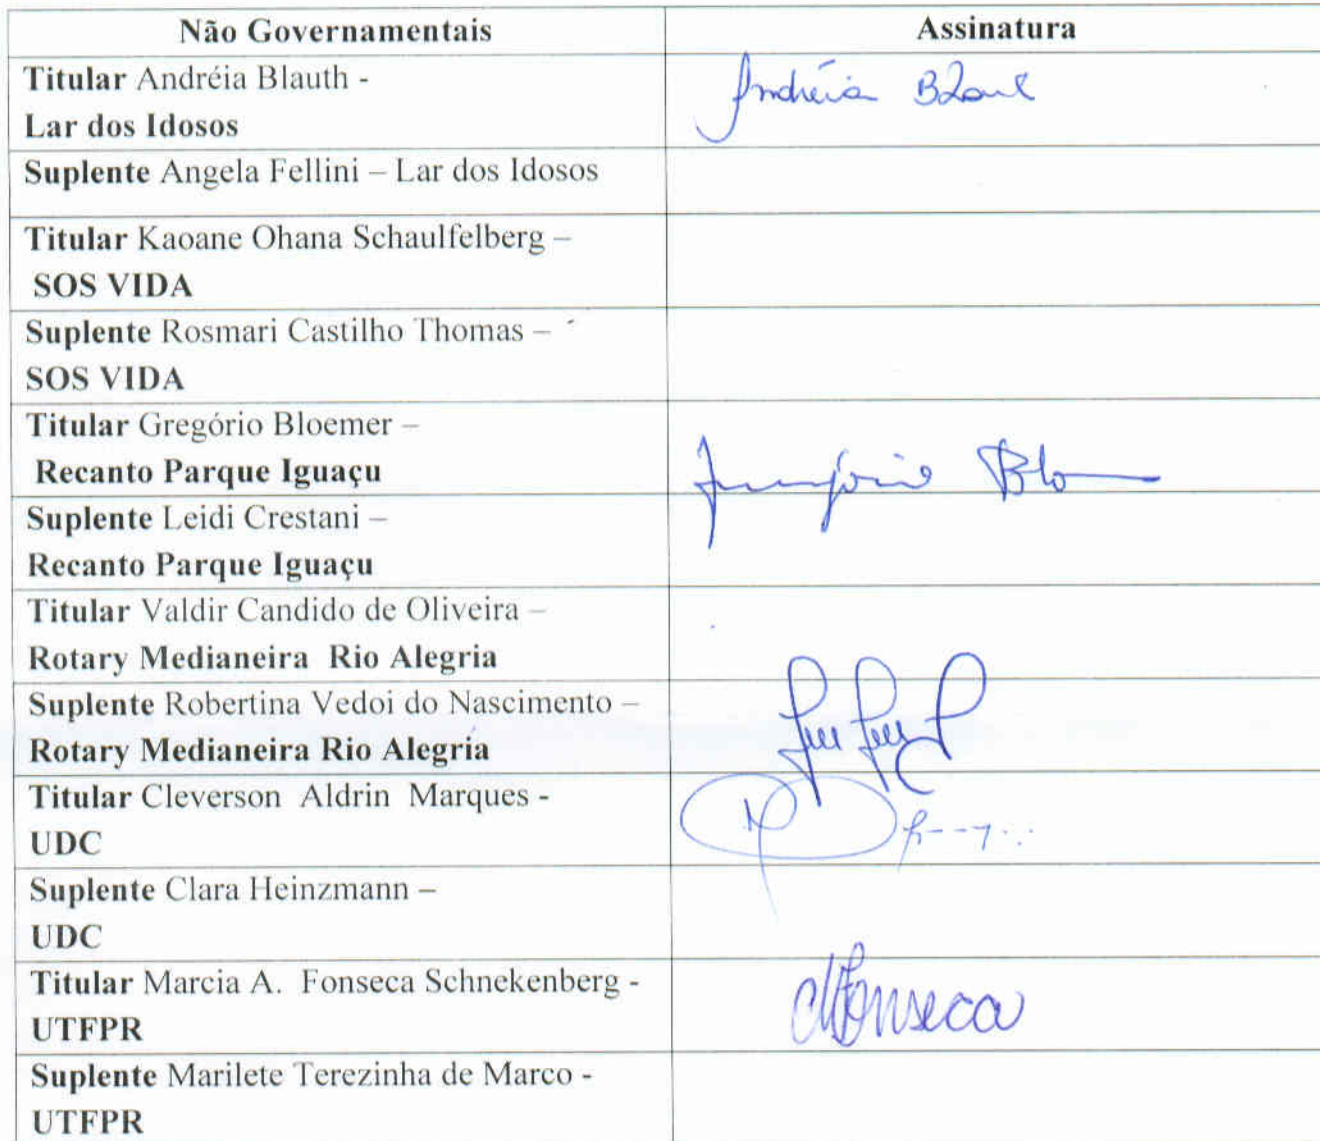 Não Governamentais Assinatura
Titular Andréia Blauth - Andréia Blaut
Lar dos Idosos
Suplente Angela Fellini – Lar dos Idosos
Titular Kaoane Ohana Schaulfelberg –
SOS VIDA
Suplente Rosmari Castilho Thomas –
SOS VIDA
Titular Gregório Bloemer –
Recanto Parque Iguaçu Gregório Blo
Suplente Leidi Crestani –
Recanto Parque Iguaçu
Titular Valdir Candido de Oliveira –
Rotary Medianeira Rio Alegria
Suplente Robertina Vedoi do Nascimento –
Rotary Medianeira Rio Alegria
Titular Cleverson Aldrin Marques -
UDC
Suplente Clara Heinzmann –
UDC
Titular Marcia A. Fonseca Schnekenberg -
UTFPR MFonseca
Suplente Marilete Terezinha de Marco -
UTFPR